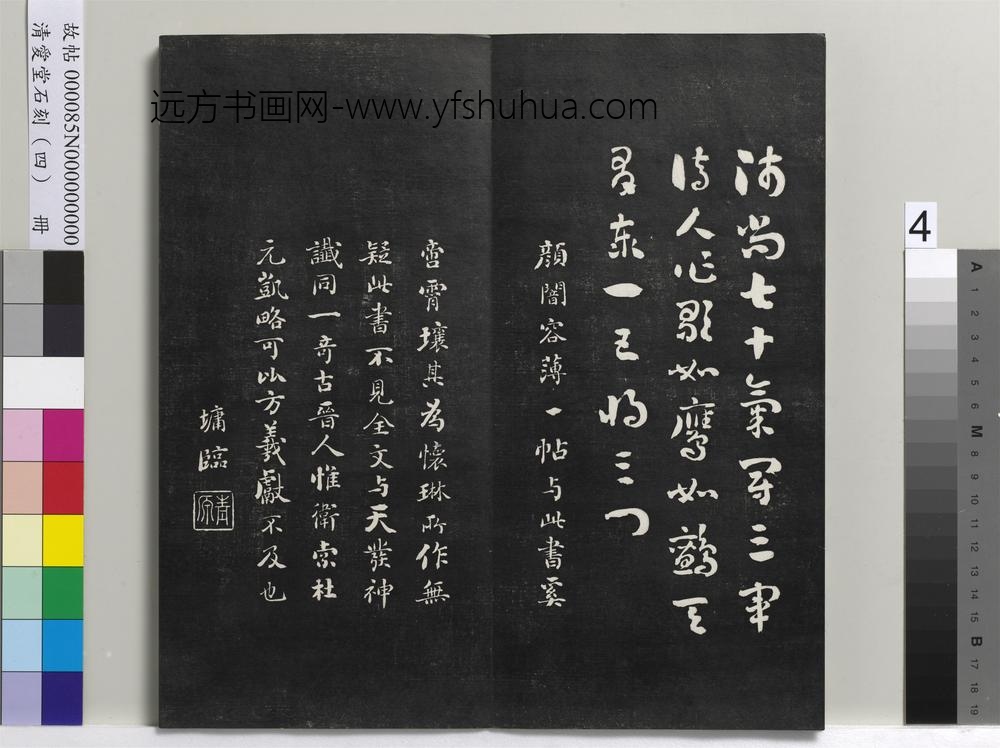 尚七十氣冠三軍
詩人作歌如鷹如鸇天
顏闇容薄一帖与此書奚
啻霄壤其為懷琳所作無
疑此書不見全文与天發神
讖同一奇古晉人惟衛索杜
元凱略可比方羲獻不及也
墉臨
远方书画网-www.yfshuhua.com
故帖 000085N000000000
清愛堂石刻（四） 冊
4
A
1
2
3
4
5
6
M
8
9
10
11
12
13
14
15
B
17
18
19